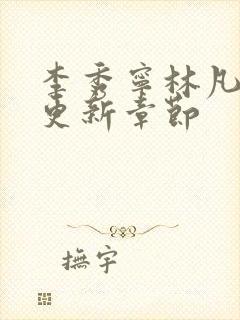 李秀寧林凡
更新章節
撫宇